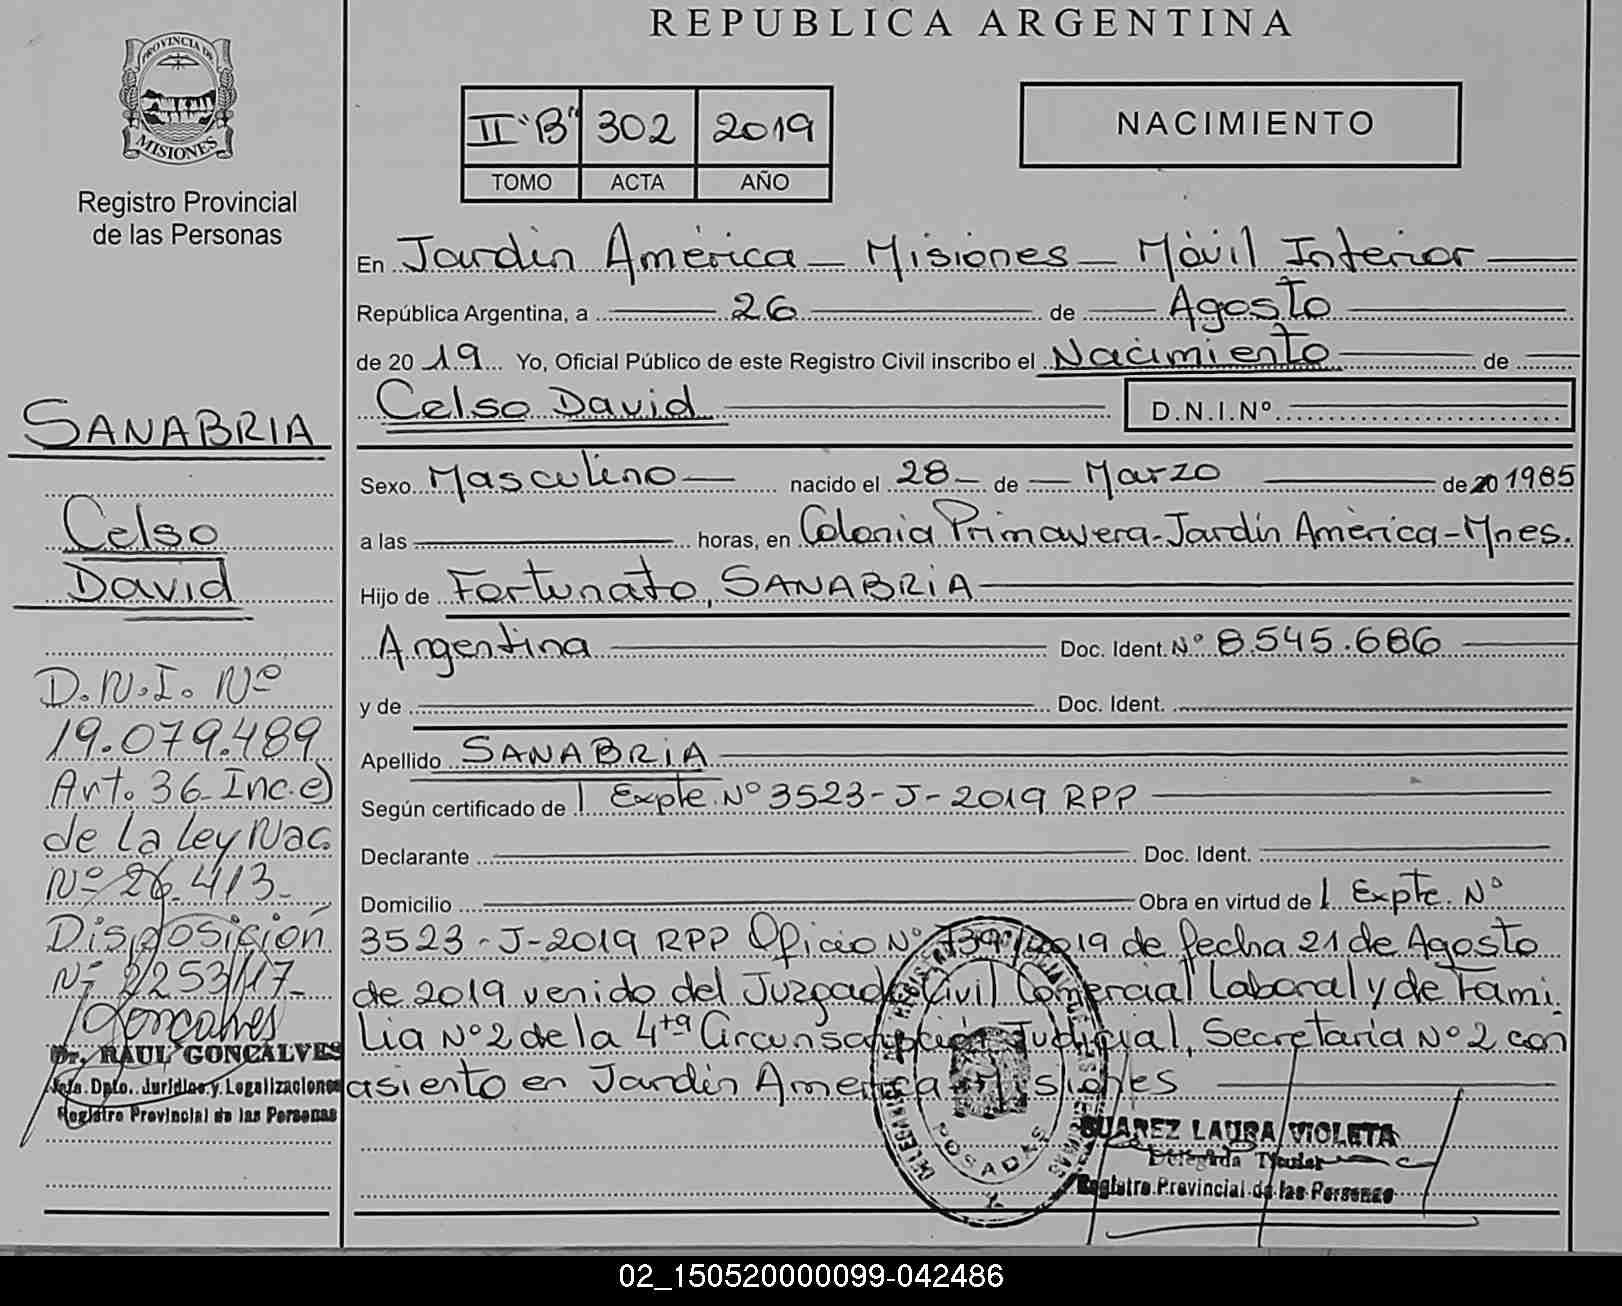 REPUBLICA ARGENTINA
PROVINCIA DE
MISIONES
Registro Provincial
de las Personas
II "B" 302 2019
TOMO ACTA AÑO
NACIMIENTO
En Jardín América - Misiones - Móvil Interior
República Argentina, a 26 de Agosto
de 2019 Yo, Oficial Público de este Registro Civil inscribo el Nacimiento de
Celso David D.N.I.Nº
Sexo Masculino nacido el 28 de Marzo de 20 1985
a las horas, en Colonia Primavera - Jardín América - Mnes.
Hijo de Fortunato, SANABRIA
Argentina Doc. Ident. Nº 8.545.686
y de Doc. Ident.
Apellido SANABRIA
Según certificado de | Expte. Nº 3523-J-2019 RPP
Declarante Doc. Ident.
Domicilio Obra en virtud de | Expte. Nº
3523-J-2019 RPP Oficio Nº 2019 de fecha 21 de Agosto
de 2019 venido del Juzgado Civil Comercial Laboral y de Fami
lia Nº 2 de la 4ta Circunscripción Judicial, Secretaria Nº 2 con
asiento en Jardín América - Misiones
POSADAS
SUAREZ LAURA VIOLETA
Delegada Titular
Registro Provincial de las Personas
SANABRIA
Celso
David
D.N.I. Nº
19.079.489
Art. 36 Inc. e)
de la Ley Nac.
Nº 26.413-
Disposición
Nº 2253/17-
Goncalves
Dr. RAUL GONCALVES
Jefe. Dpto. Juridico y Legalizaciones
Registro Provincial de las Personas
02_150520000099-042486